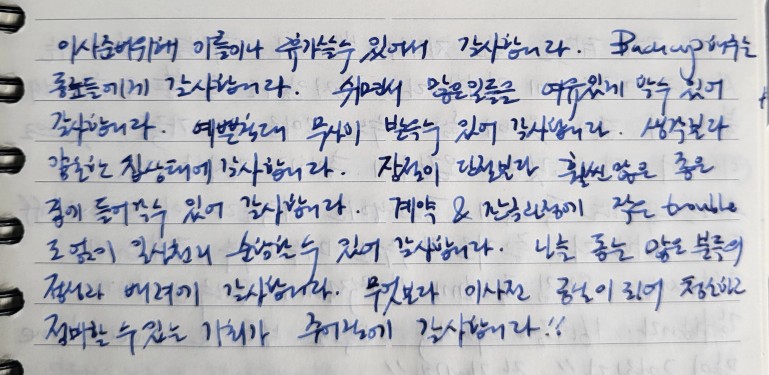 이사준비위해 이틀이나 휴가쓸수 있어서 감사합니다. Back up 해주는
동료들에게 감사합니다. 쉬면서 많은일들을 여유있게 할수 있어
감사합니다. 예쁜침대 무사히 받을수 있어 감사합니다. 생각보다
깔끔한 집상태에 감사합니다. 장점이 단점보다 훨씬 많은 좋은
집에 들어갈수 있어 감사합니다. 계약 & 잔금과정에 작은 trouble
도 없이 일사천리 순항할수 있어 감사합니다. 나를 돕는 많은 분들의
정성과 배려에 감사합니다. 무엇보다 이사전 공실이 되어 청소하고
정비할 수 있는 기회가 주어짐에 감사합니다!!